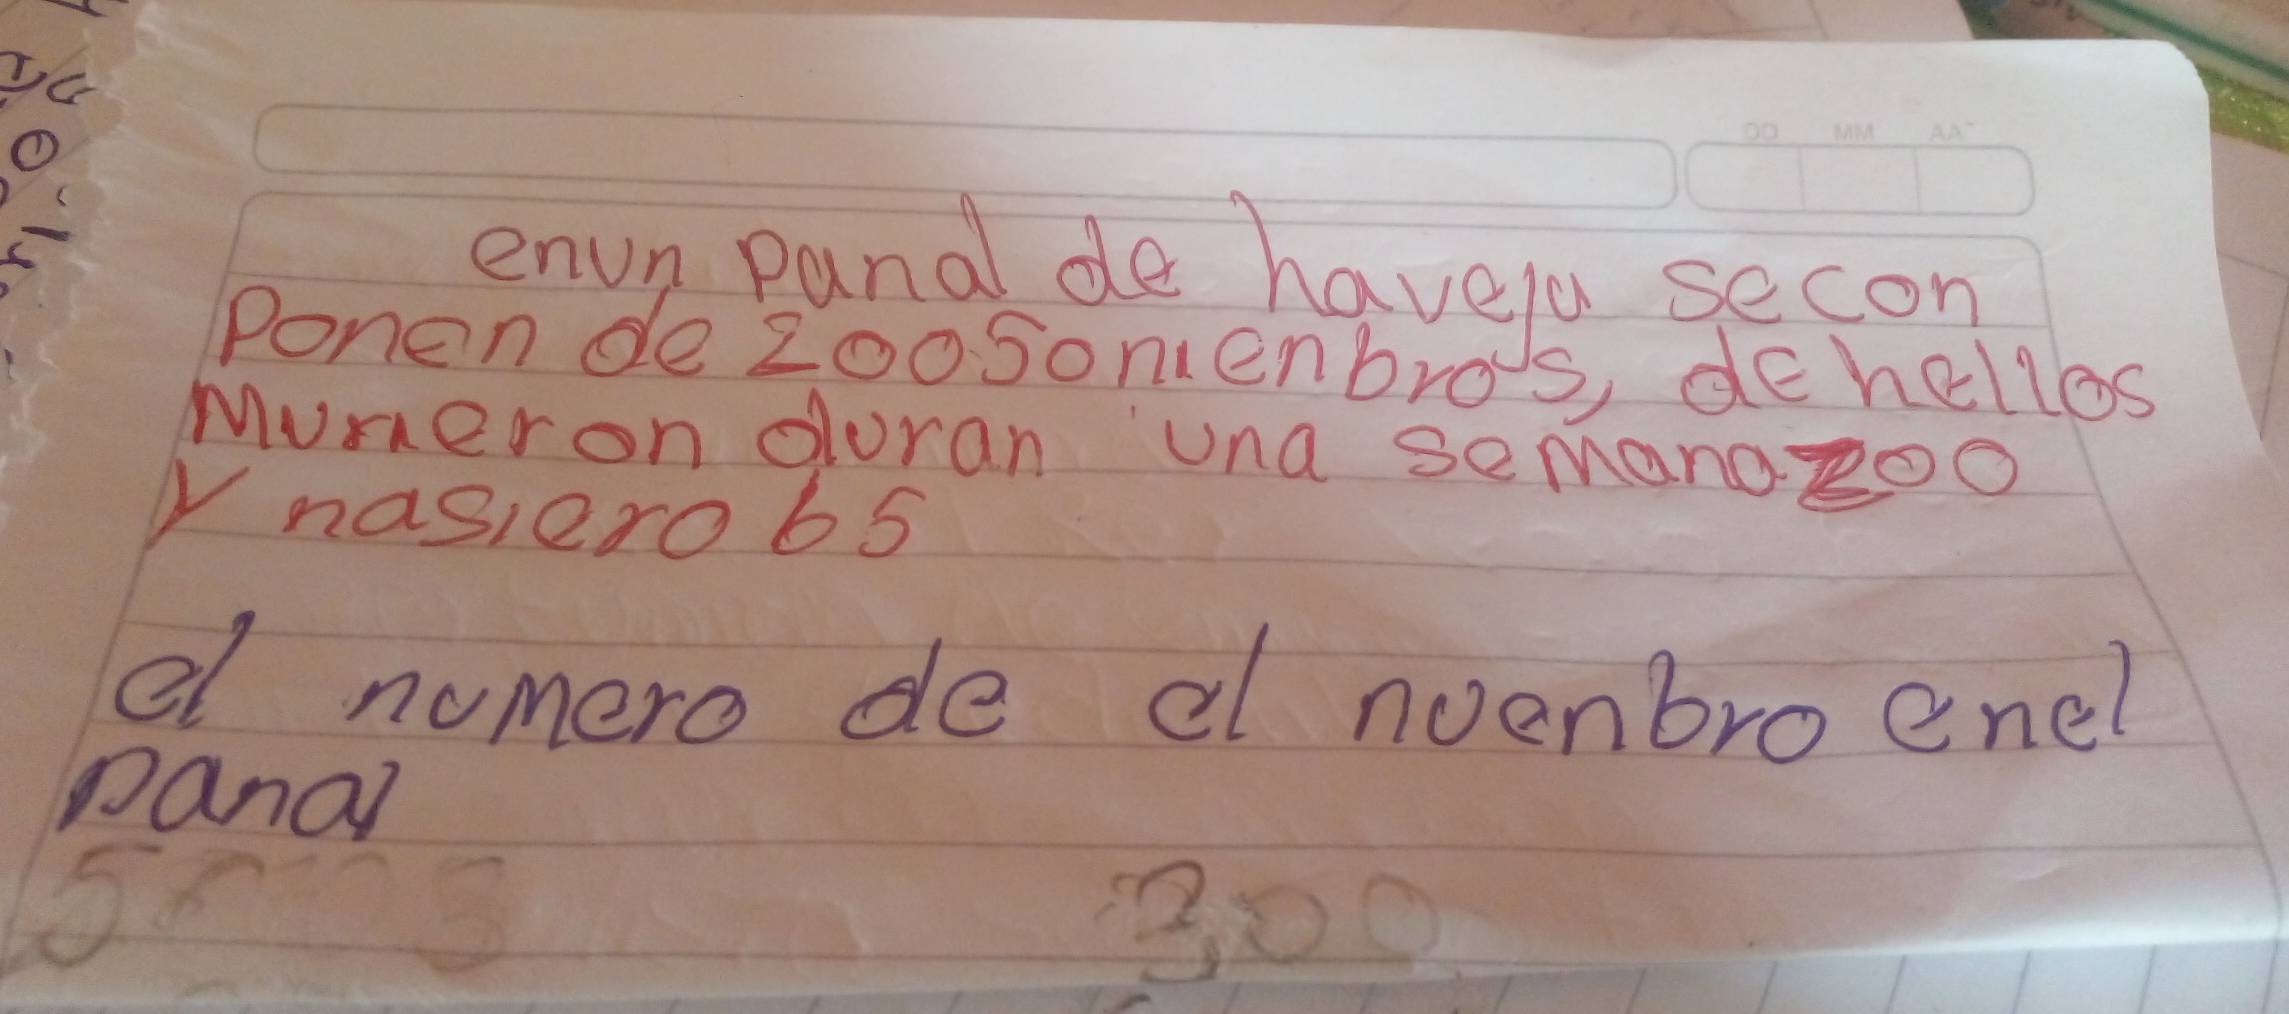 DD MM AA
enun panal de haveja secon
Ponen de 20050 mienbros, de hellos
Murieron duran una semana 200
y nasiero 65
el numero de el nuenbro enel
panal
300